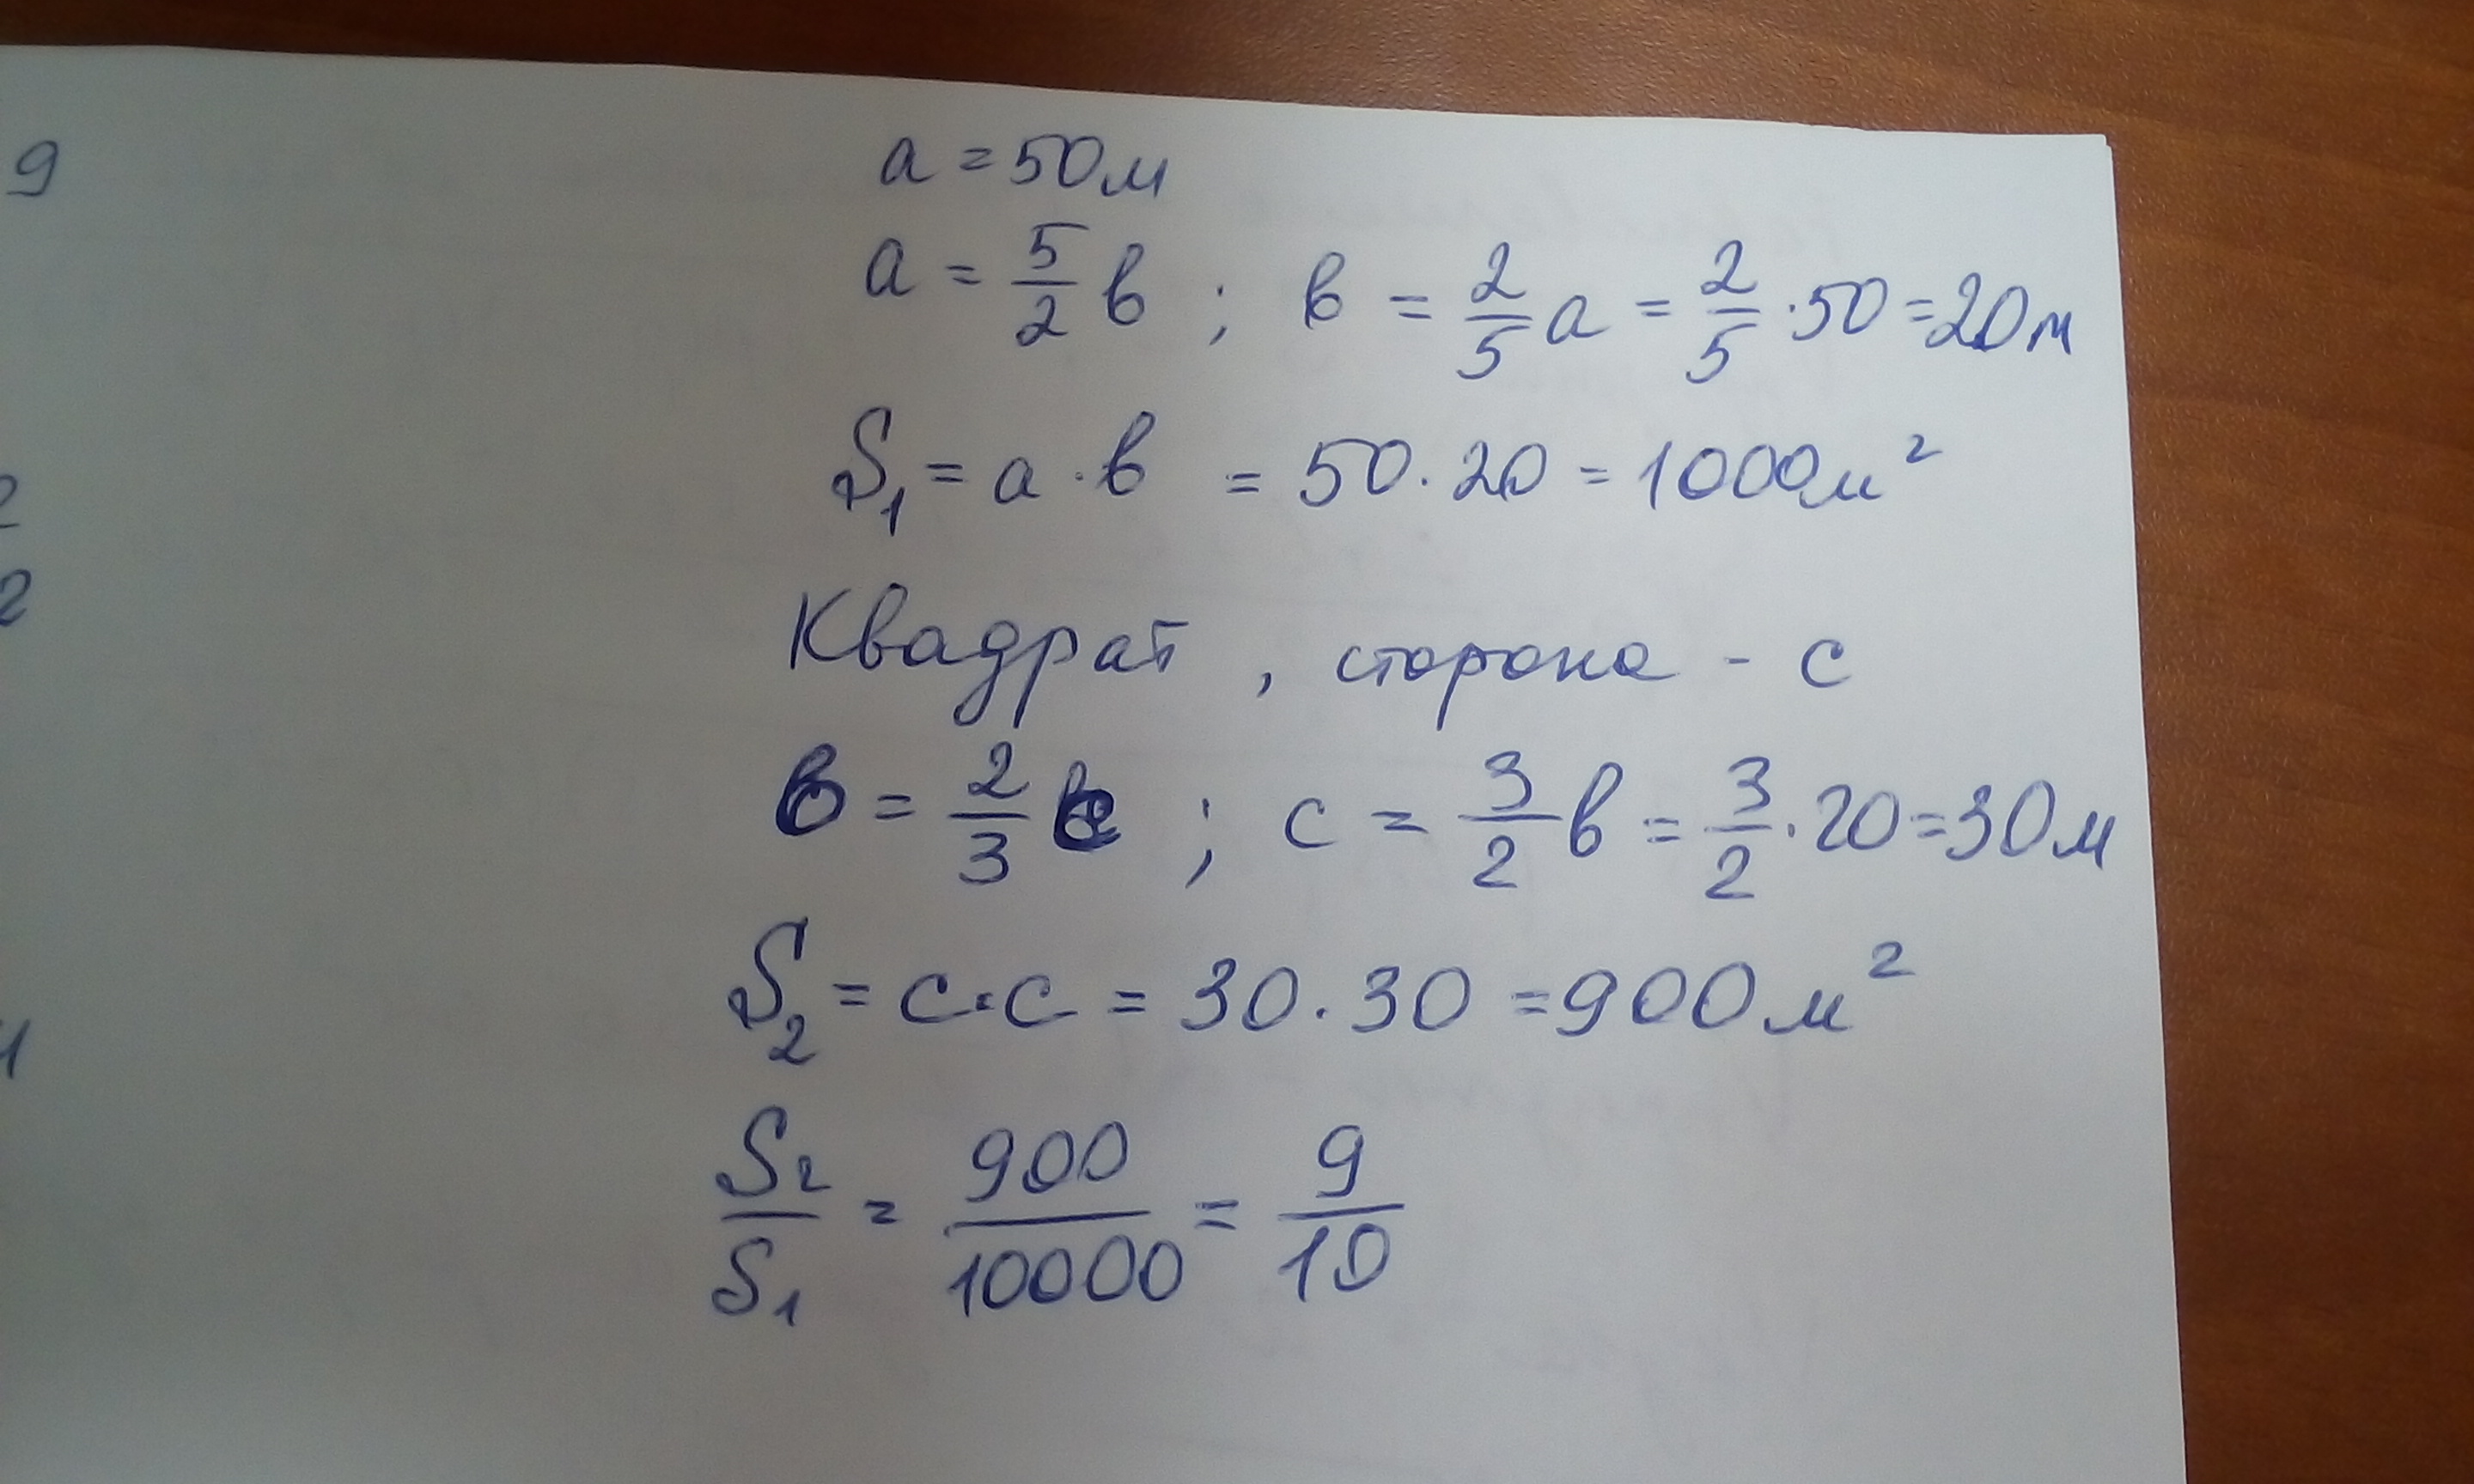 9
a = 50м
a = 5/2 в ; в = 2/5 a = 2/5 · 50 = 20м
S₁ = a · в = 50 · 20 = 1000м²
2
2
Квадрат , сторона - с
в = 2/3 с ; с = 3/2 в = 3/2 · 20 = 30м
S₂ = с · с = 30 · 30 = 900м²
1
S₂/S₁ = 900/10000 = 9/10